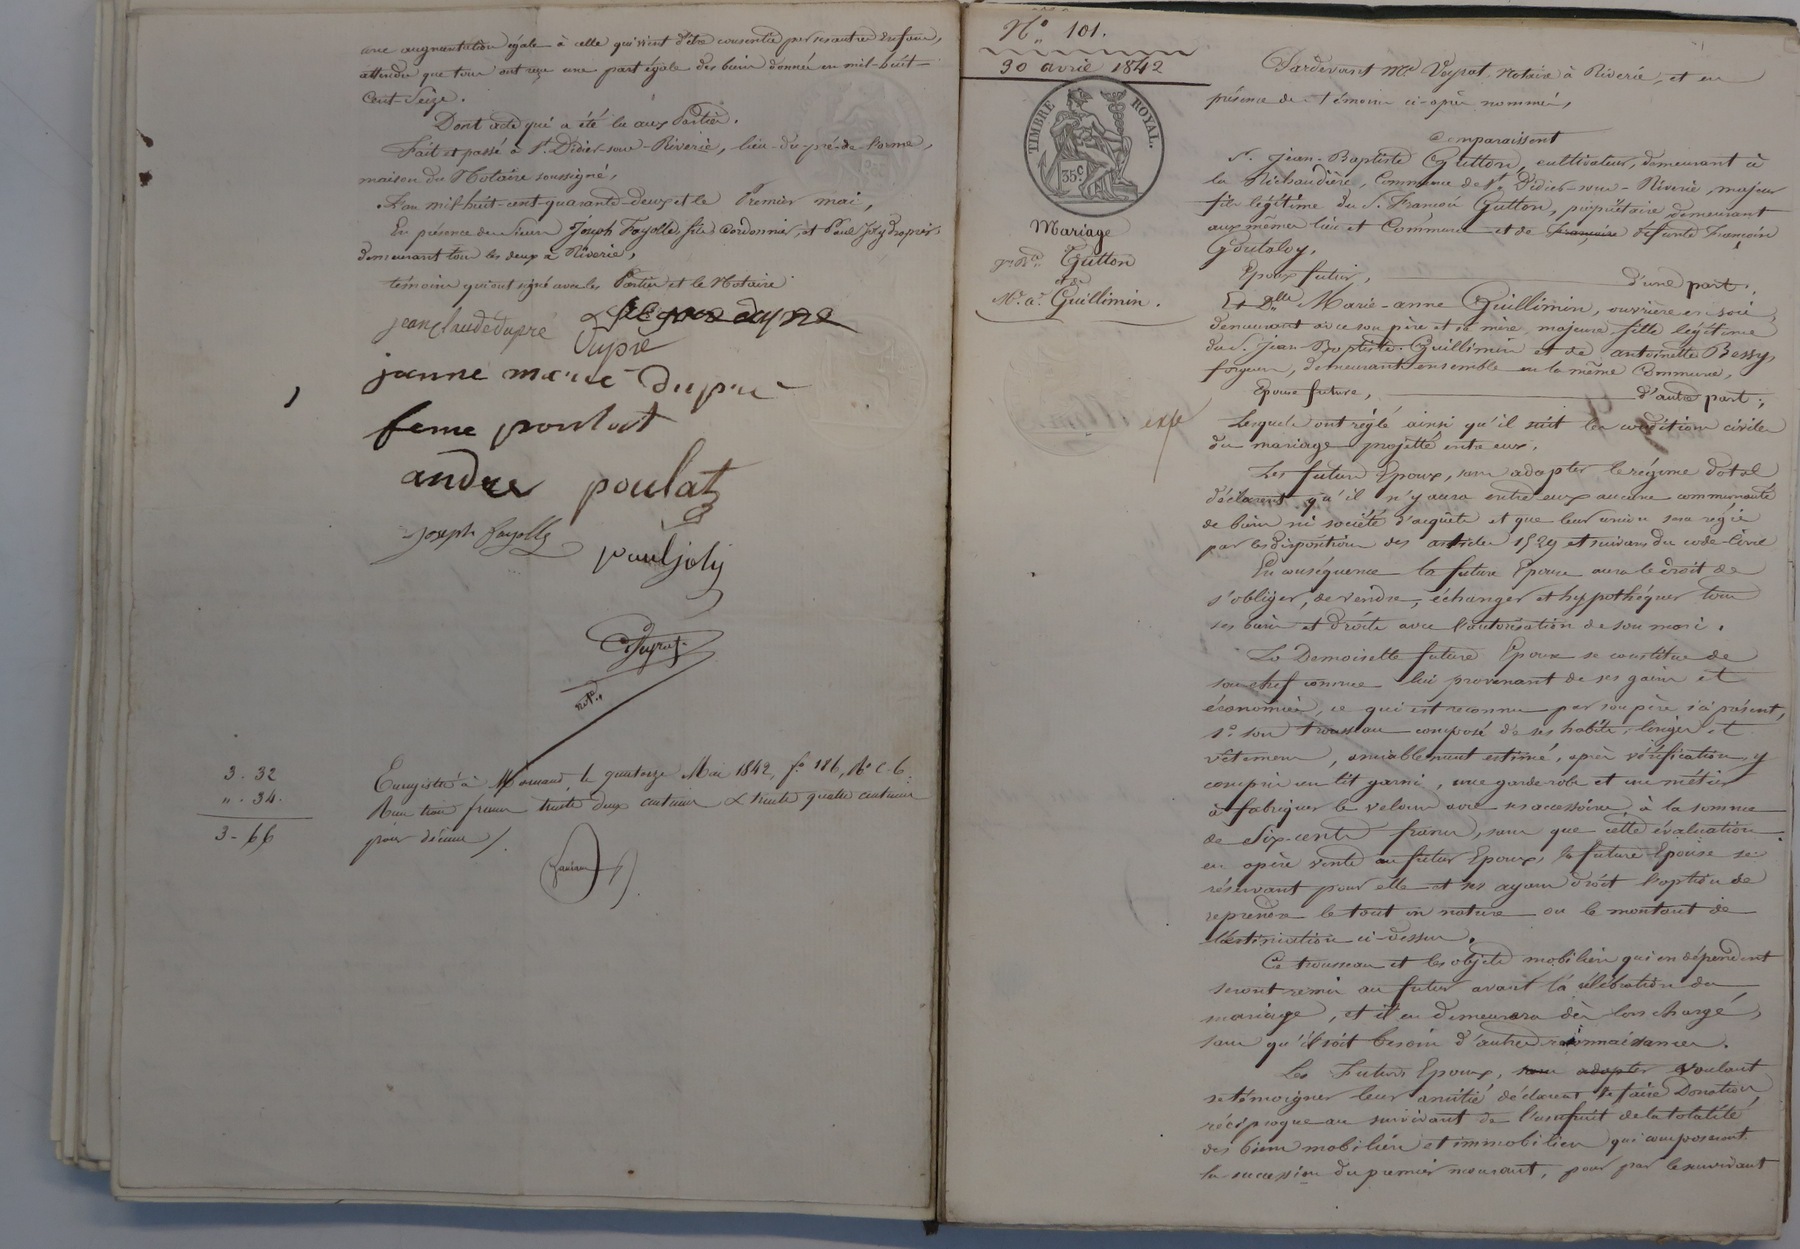 une augmentation égale à celle qui vient d'être consentie par ses autres enfans,
attendu que tous ont reçu une part égale des biens donnés en mil-huit-
cent-seize.
Dont acte qui a été lu aux Parties.
Fait et passé à St. Didier-sous-Riverie, lieu-du-pré-de l'orme,
maison du Notaire soussigné,
L'an mil-huit-cent-quarante-deux et le Premier mai,
En présence des sieurs Joseph Fayolle fils Cordonnier, et Paul Joly
demeurant tous les deux à Riverie,
témoins qui ont signé avec les Parties et le Notaire
jean claude dupré
Dupré
janne marie dupré
feme poulat
andre poulat
joseph fayolle
paul joly
notre.
3. 32
". 34.
3 - 66
Enregistré à Mornant le quatorze Mai 1842, fo. 116, Ro. c. 6.
Reçu trois francs trente deux centimes & trente quatre centimes
pour décime /.
No. 101.
30 avril 1842
TIMBRE ROYAL.
35 c.
Mariage
Jn. Bte. Gutton
et
Me. A. Guillimin.
expé
Pardevant Me Notaire à Riverie, et en
présence des témoins ci-après nommés,
Comparaissent
Sr. Jean-Baptiste Gutton, cultivateur, demeurant à
la Richaudière, Commune de St. Didier-sous-Riverie, majeur
fils légitime du Sr. François Gutton, propriétaire demeurant
aux mêmes lieu et Commune et de françoise défunte Françoise
Goutaloy,
Epoux futur, d'une part.
Et Dlle Marie-anne Guillimin, ouvrière en soie,
demeurant avec son père et sa mère, majeure, fille légitime
du Sr. Jean-Baptiste Guillimin et de antoinette Bessy,
forgeur, demeurant ensemble en la même Commune,
Epouse future, d'autre part;
Lesquels ont réglé ainsi qu'il suit les conditions civiles
du mariage projetté entre eux.
Les futurs Epoux, sans adopter le régime dotal
déclarent qu'il n'y aura entre eux aucune communauté
de biens ni société d'acquêts et que leur union sera régie
par les dispositions des articles 1529 et suivans du code-Civil
En conséquence la future Epouse aura le droit de
s'obliger, de vendre, échanger et hypothéquer tous
ses biens et droits avec l'autorisation de son mari.
La Demoiselle future Epouse se constitue de
son chef comme lui provenant de ses gains et
économies, ce qui est reconnu par son père ici présent,
1o. son trousseau composé de ses habits, linges et
vêtemens, amiablement estimé, après vérification, y
compris un lit garni, une garderobe et un métier
à fabriquer le velours avec ses accessoires à la somme
de Six-cents francs, sans que cette évaluation
en opère vente au futur Epoux, la future Epouse se
réservant pour elle et ses ayans droit l'option de
reprendre le tout en nature ou le montant de
l'estimation ci-dessus.
Ce trousseau et les objets mobiliers qui en dépendent
seront remis au futur avant la célébration du
mariage, et il en demeurera dès lors chargé,
sans qu'il soit besoin d'autres reconnaissances.
Les Futurs Epoux, sans adopter voulant
se témoigner leur amitié déclarent se faire Donation
réciproque au survivant de l'usufruit de la totalité
des biens mobiliers et immobiliers qui composeront
la succession du premier mourant, pour par le survivant